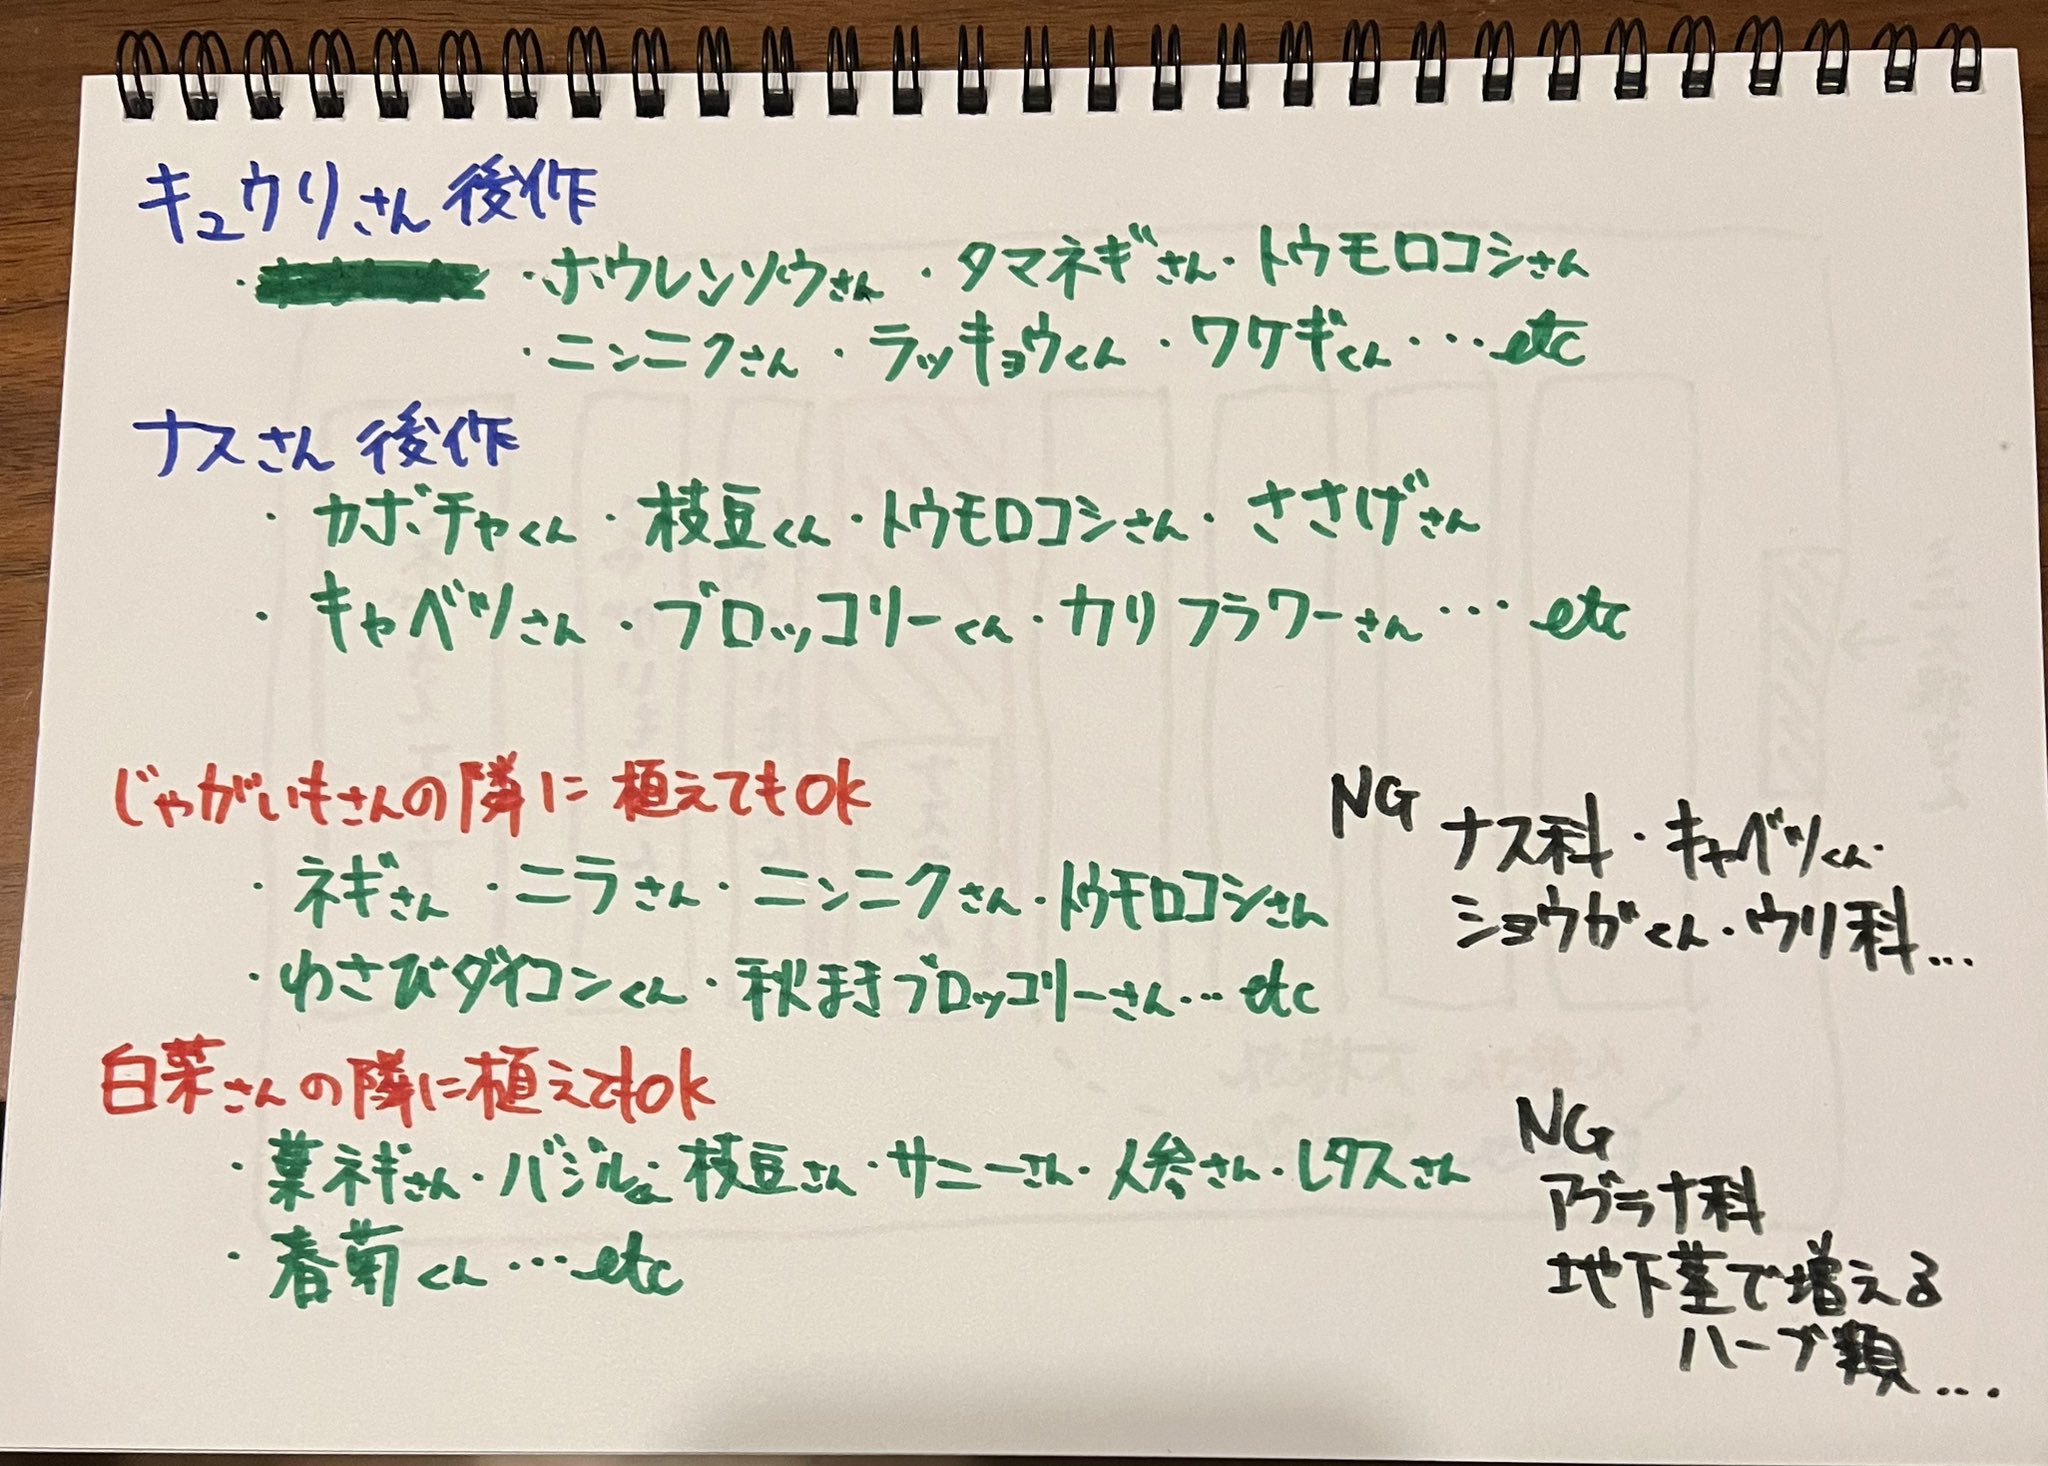 キュウリさん 後作
・ ・ホウレンソウさん ・タマネギさん・トウモロコシさん
・ニンニクさん ・ラッキョウくん ・ワケギくん ・…etc
ナスさん 後作
・カボチャくん ・枝豆くん・トウモロコシさん・ささげさん
・キャベツさん ・ブロッコリーくん・カリフラワーさん … etc
じゃがいもさんの隣に 植えてもOK
・ネギさん ・ニラさん・ニンニクさん・トウモロコシさん
・わさびダイコンくん・秋まきブロッコリーさん… etc
NG
ナス科・キャベツくん・
ショウガくん・ウリ科…
白菜さんの隣に植えてもOK
・葉ネギさん・バジルくん 枝豆さん・サニーさん・人参さん・レタスさん
・春菊くん…etc
NG
アブラナ科
地下茎で増える
ハーブ類…